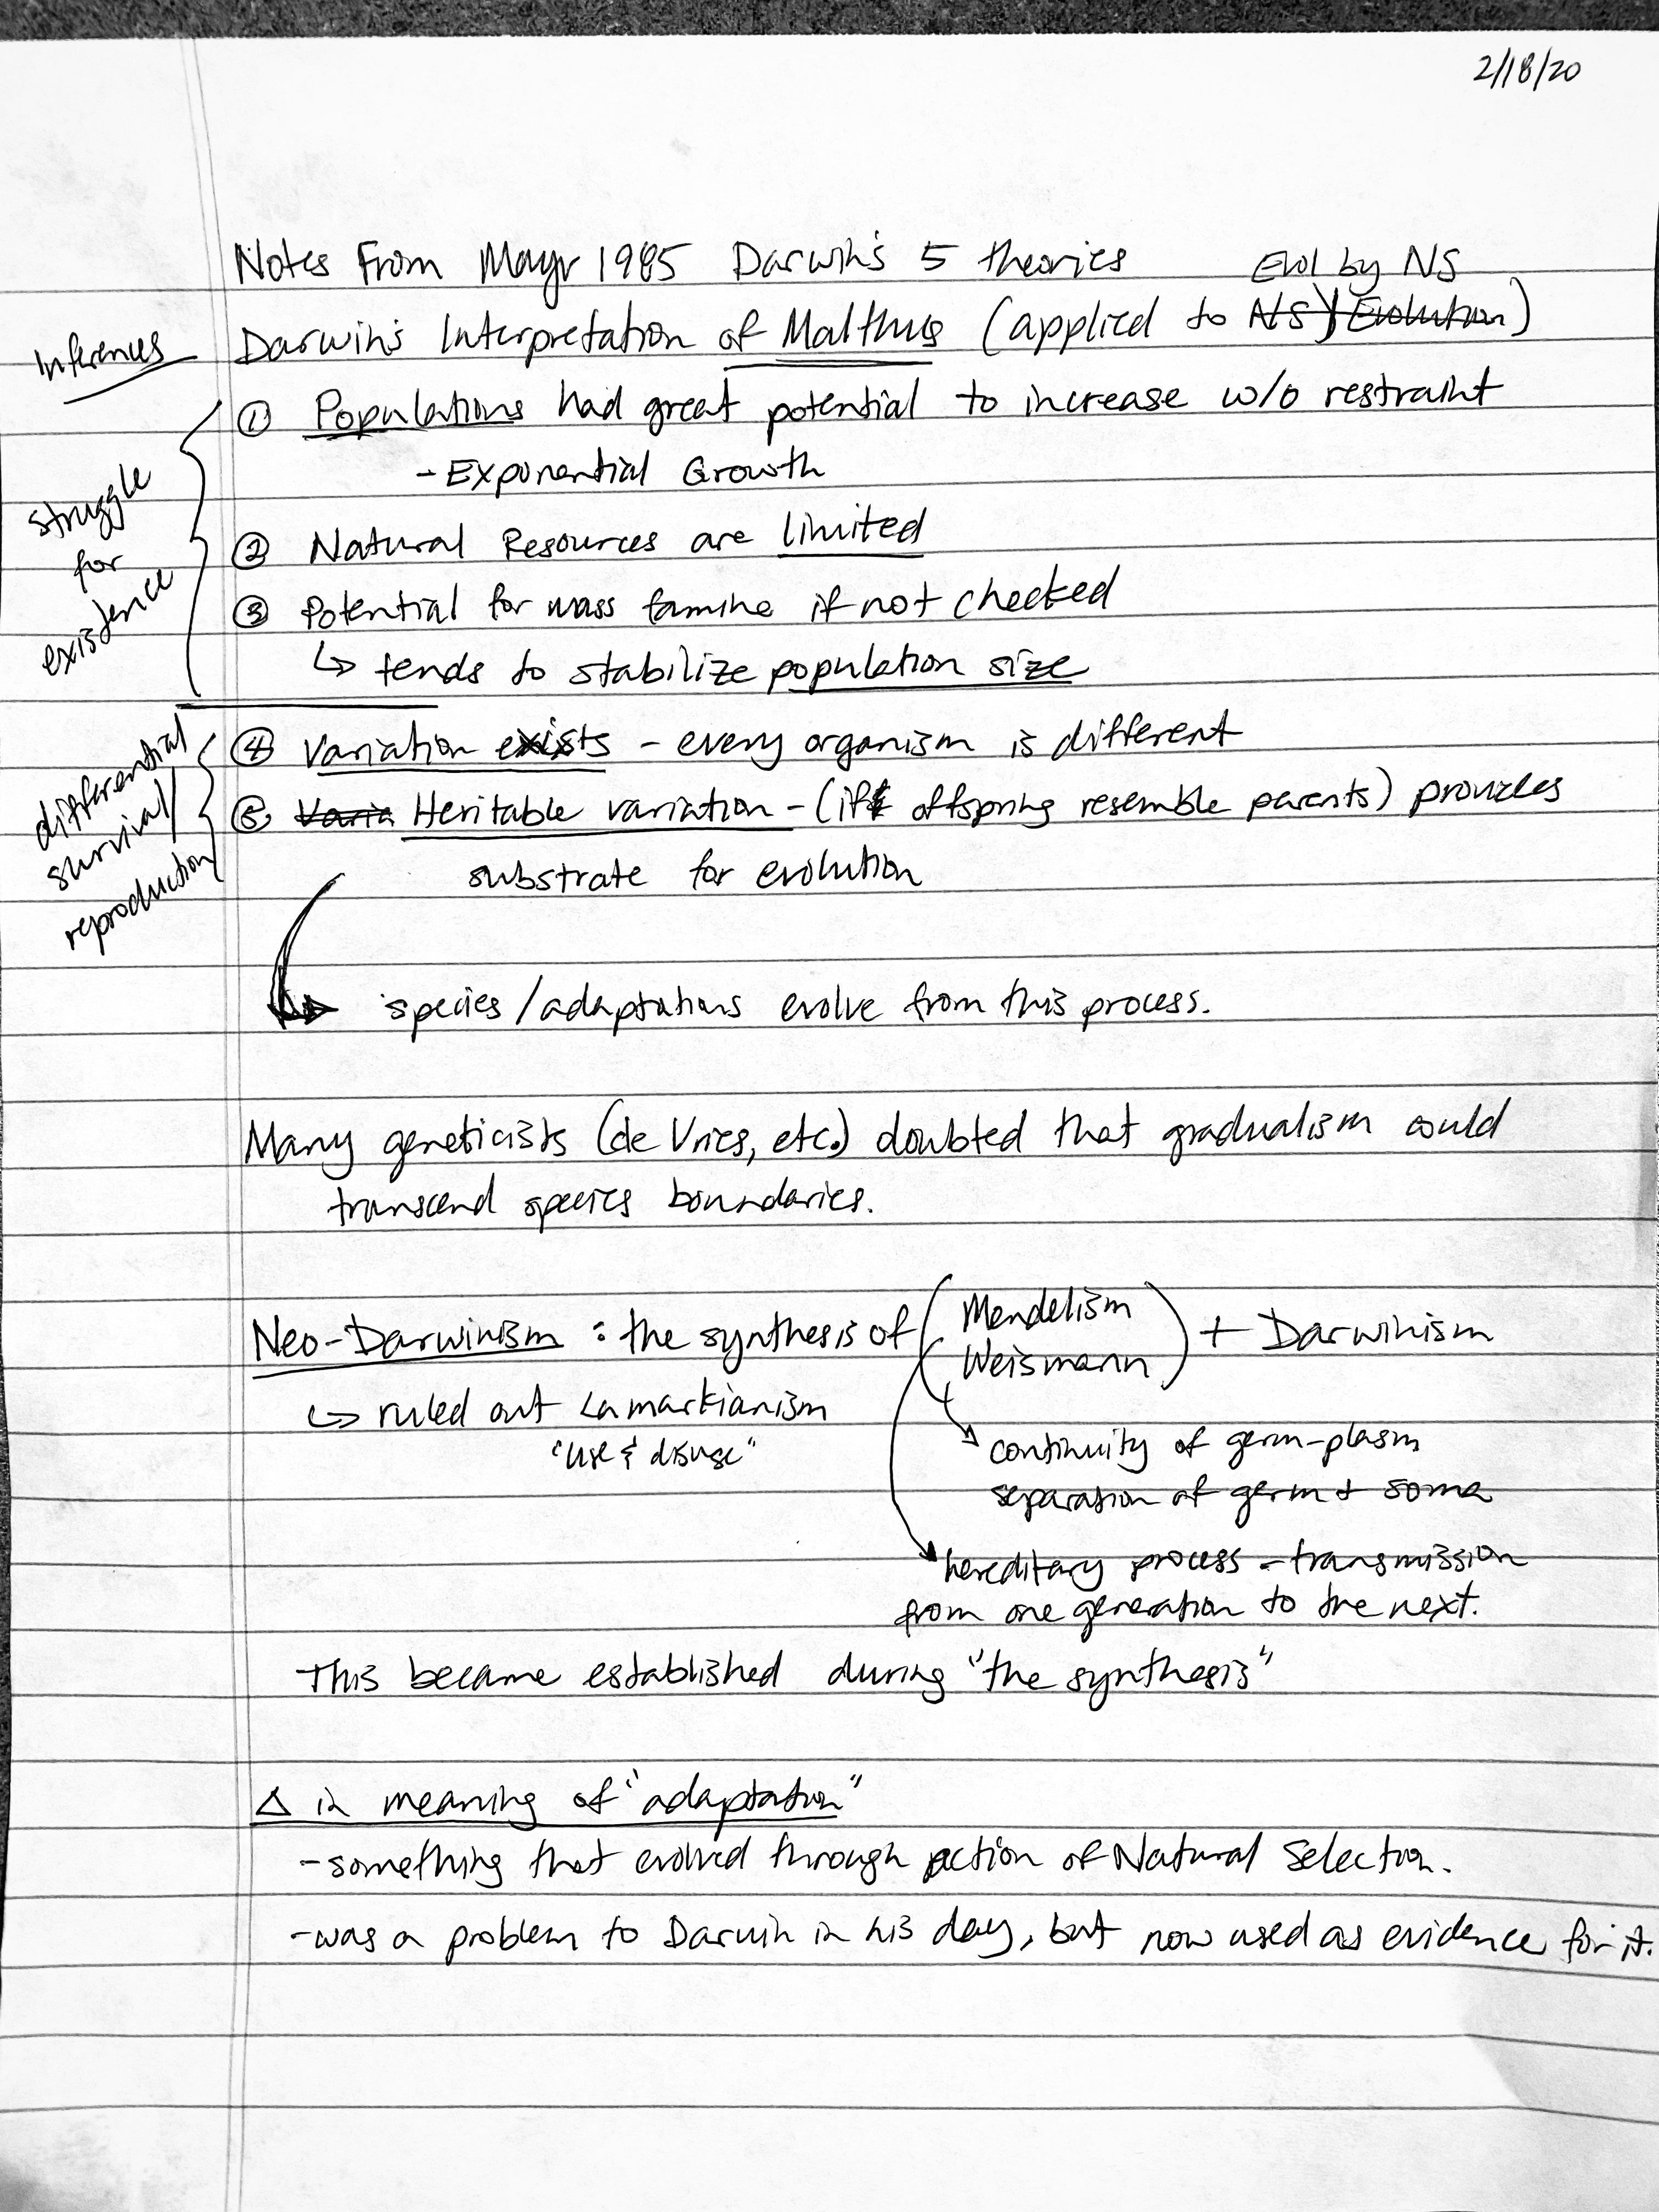 2/18/20
Notes From Mayr 1985 Darwin's 5 theories
Evol by NS
Inferences
Darwin's Interpretation of Malthus (applied to NS) Evolution)
① Populations had great potential to increase w/o restraint
- Exponential Growth
struggle
for
existence
② Natural Resources are limited
③ Potential for mass famine if not checked
↳ tends to stabilize population size
differential
survival/
reproduction
④ Variation exists - every organism is different
⑤ Varia Heritable variation - (if offspring resemble parents) provides
substrate for evolution
species/adaptations evolve from this process.
Many geneticists (de Vries, etc.) doubted that gradualism could
transcend species boundaries.
Neo-Darwinism : the synthesis of (Mendelism
Weismann) + Darwinism
↳ ruled out Lamarkianism
"use & disuse"
continuity of germ-plasm
separation of germ + soma
hereditary process - transmission
from one generation to the next.
This became established during "the synthesis"
Δ in meaning of "adaptation"
- something that evolved through action of Natural Selection.
- was a problem to Darwin in his day, but now used as evidence for it.